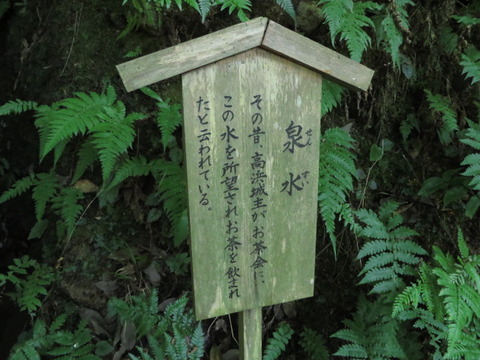 泉水
せんすい
その昔、高浜城主がお茶会に、
この水を所望されお茶を飲され
たと云われている。